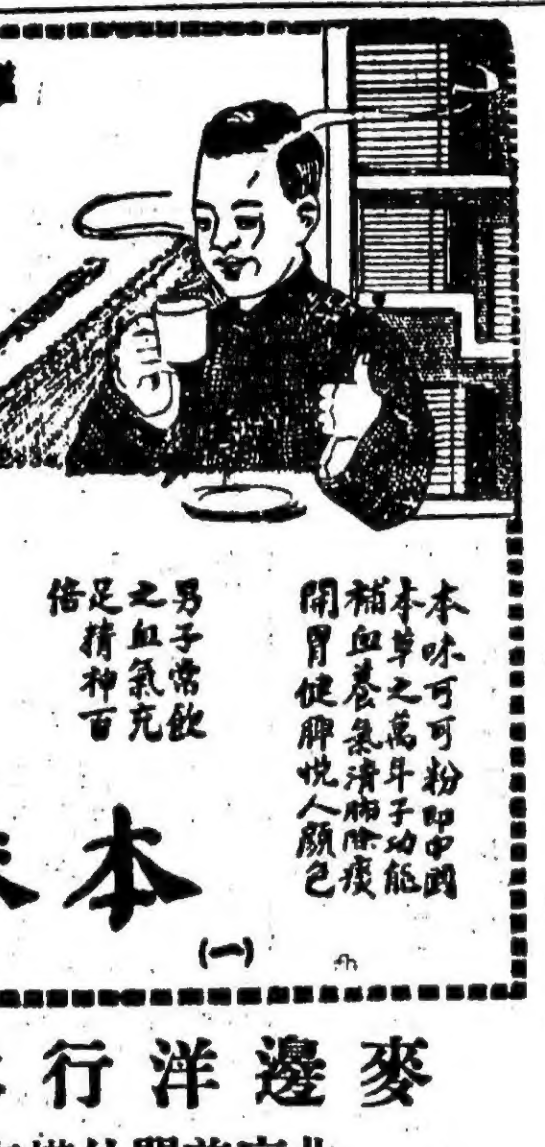 本味可可粉即中國
本草之萬年子功能
補血養氣清肺除痰
開胃健脾悅人顏色
男子常飲
之血氣充
足精神百
倍
本
(一)
麥邊洋行